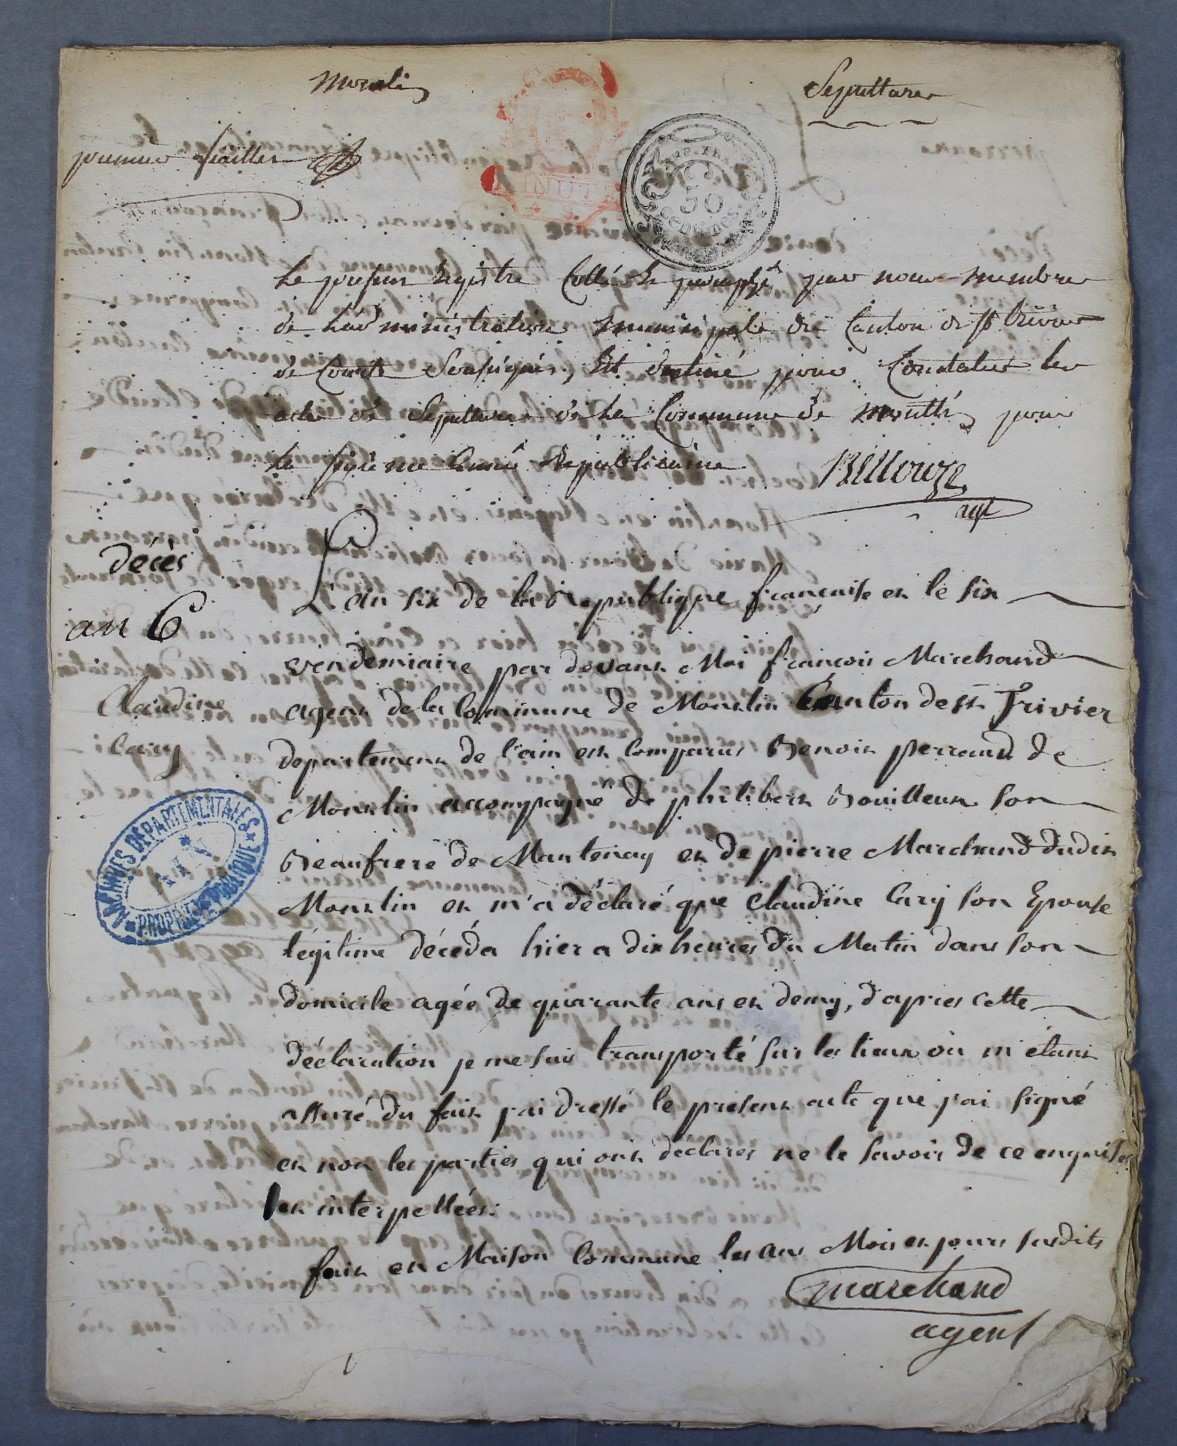 Sepultures
premier feuillet
REP. FRA.
50
CENTIMES
Le present Registre Cotté & paraphé par nous membre
de Ladministration municipale du Canton de St trivier
de Courte Soussigné, Est destiné pour Constater les
actes de Sepultures de La Commune de
pour
Le sixieme année Republicaine
agt
décès
an 6
L'an six de la Republique francaise en le six
vendemiaire par devant Moi françois Marchand
Claudine
agent de la Commune de Monslin Canton de St Trivier
Cary
departement de l'ain est Comparus Benoit perraud de
Monslin accompagné de philibert Bouilleux son
ARCHIVES DÉPARTEMENTALES
AIN
PROPRIÉTÉ PUBLIQUE
Beaufrere de Mantenay et de pierre Marchand dudit
Monslin et m'a déclaré que Claudine Cary son Epouse
légitime décéda hier a dix heures du Matin dans son
domicile agée de quarante ans et demy, d'apres cette
déclaration je me suis transporté sur les lieux où m'étant
assuré du fait j'ai dressé le present acte que j'ai signé
et non les parties qui ont declarés ne le savoir de ce enquises
et interpellées.
fait en Maison Commune les ans Mois et jours susdits
marchand
agent